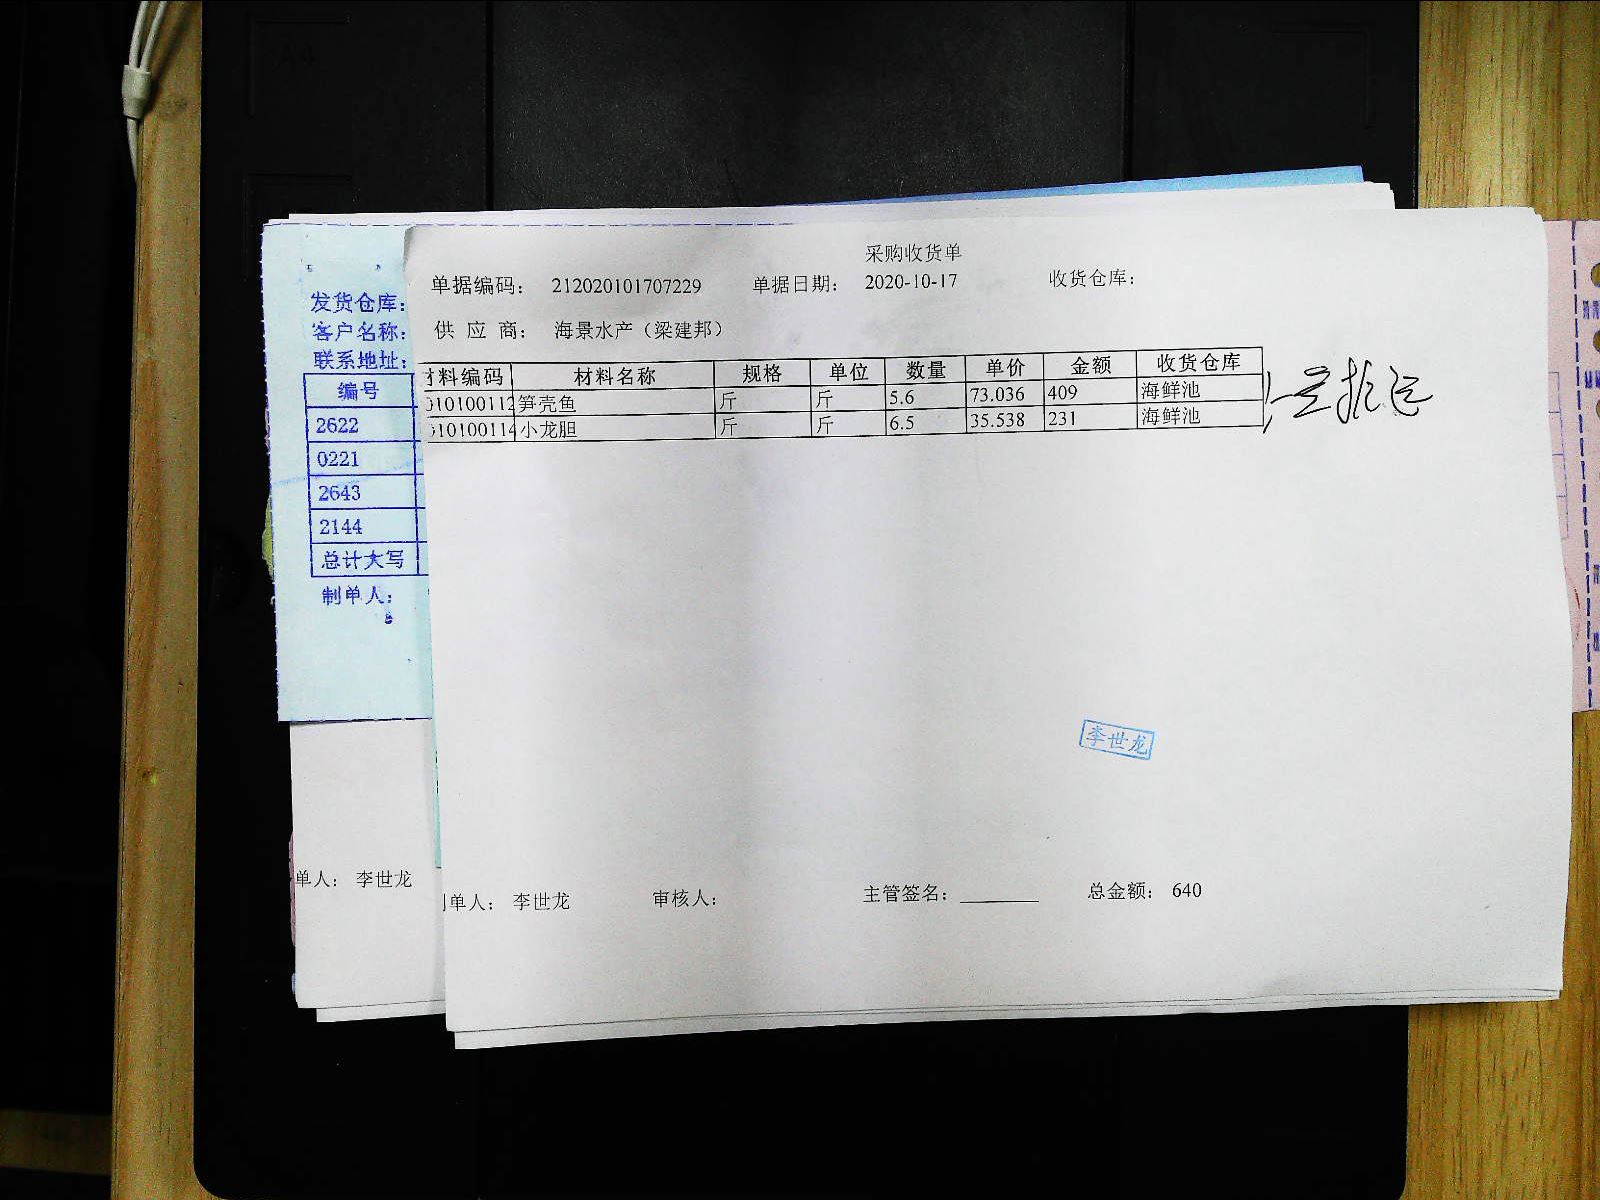 采购收货单
单据编码： 212020101707229 单据日期： 2020-10-17 收货仓库：
供 应 商： 海景水产（梁建邦）
材料编码 材料名称 规格 单位 数量 单价 金额 收货仓库
010100112 笋壳鱼 斤 斤 5.6 73.036 409 海鲜池
010100114 小龙胆 斤 斤 6.5 35.538 231 海鲜池
李世龙
制单人： 李世龙 审核人： 主管签名： 总金额： 640
发货仓库：
客户名称：
联系地址：
编号
2622
0221
2643
2144
总计大写
制单人：
单人： 李世龙